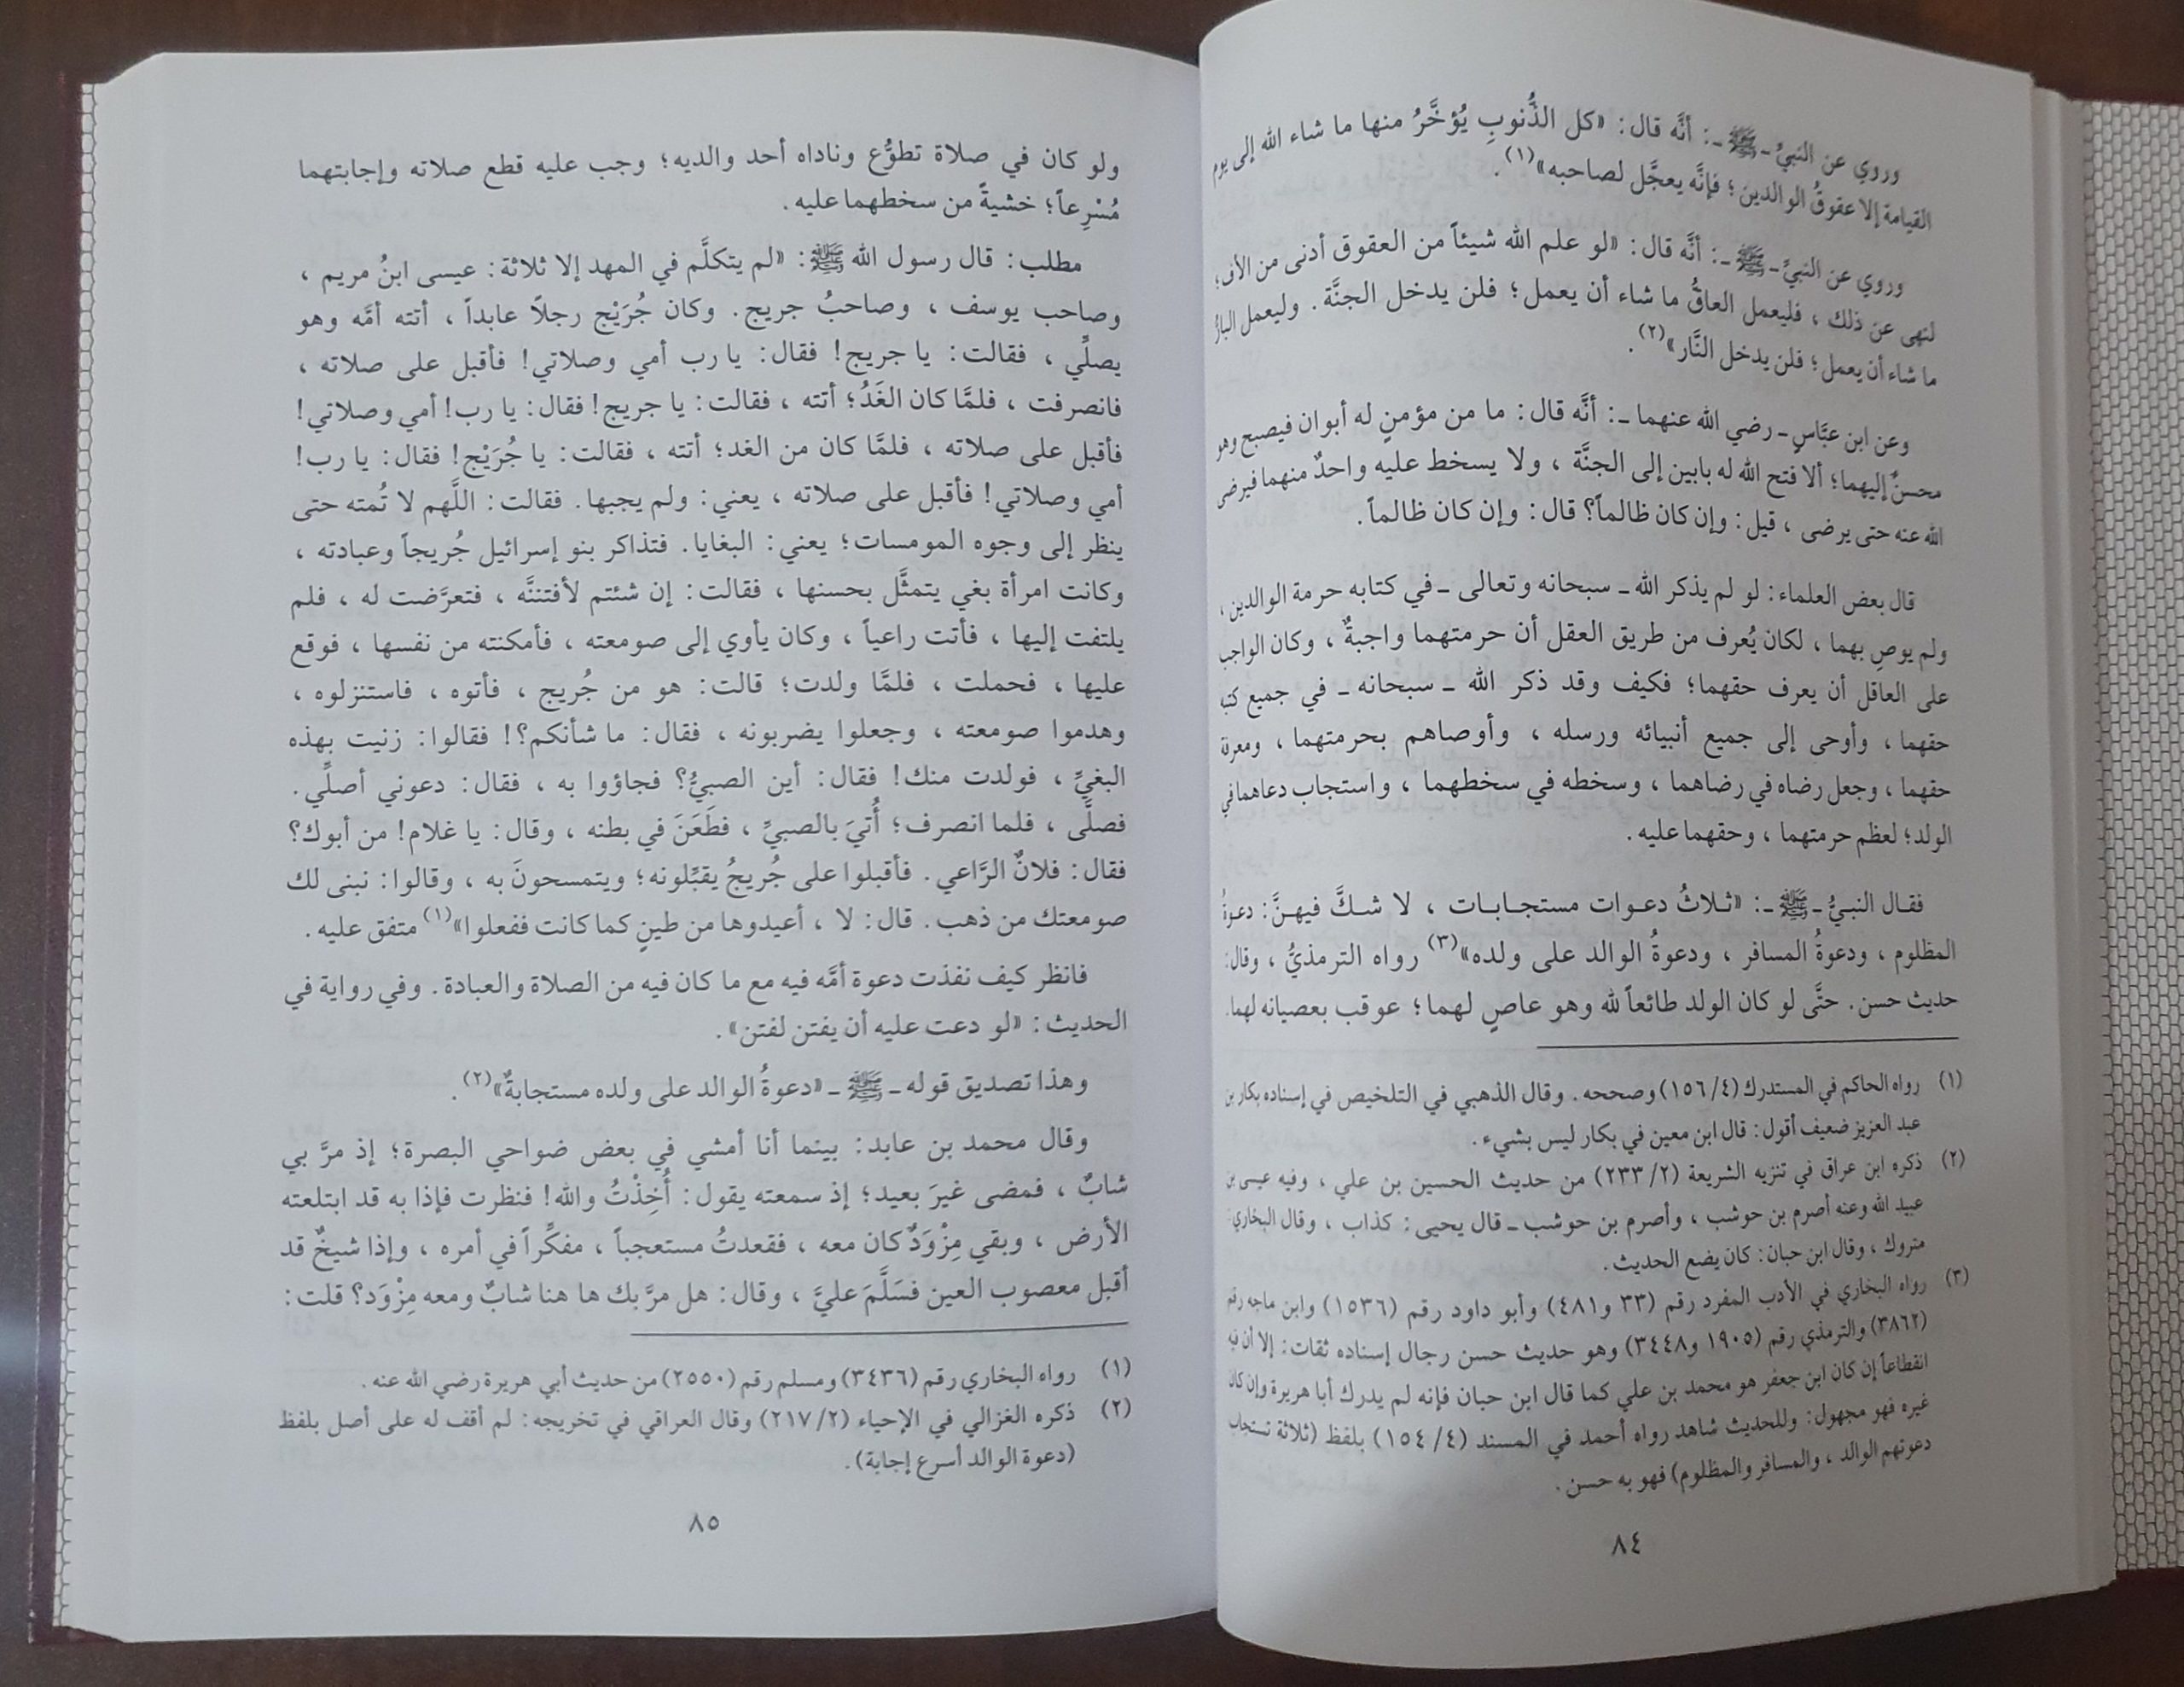 وروي عن النبيِّ ـ ﷺ ـ: أنَّه قال: «كل الذُّنوبِ يُؤخَّرُ منها ما شاء الله إلى يوم
القيامة إلا عقوقُ الوالدين؛ فإنَّه يعجَّل لصاحبه»(١).
وروي عن النبيِّ ـ ﷺ ـ: أنَّه قال: «لو علم الله شيئاً من العقوق أدنى من الأف؛
لنهى عن ذلك، فليعمل العاقُّ ما شاء أن يعمل؛ فلن يدخل الجنَّة. وليعمل البارُّ
ما شاء أن يعمل؛ فلن يدخل النَّار»(٢).
وعن ابن عبَّاسٍ ـ رضي الله عنهما ـ: أنَّه قال: ما من مؤمنٍ له أبوان فيصبح وهو
محسنٌ إليهما؛ ألا فتح الله له بابين إلى الجنَّة، ولا يسخط عليه واحدٌ منهما فيرضى
الله عنه حتى يرضى، قيل: وإن كان ظالماً؟ قال: وإن كان ظالماً.
قال بعض العلماء: لو لم يذكر الله ـ سبحانه وتعالى ـ في كتابه حرمة الوالدين،
ولم يوصِ بهما، لكان يُعرف من طريق العقل أن حرمتهما واجبةٌ، وكان الواجب
على العاقل أن يعرف حقهما؛ فكيف وقد ذكر الله ـ سبحانه ـ في جميع كتبه
حقهما، وأوحى إلى جميع أنبيائه ورسله، وأوصاهم بحرمتهما، ومعرفة
حقهما، وجعل رضاه في رضاهما، وسخطه في سخطهما، واستجاب دعاهما في
الولد؛ لعظم حرمتهما، وحقهما عليه.
فقال النبيُّ ـ ﷺ ـ: «ثلاثُ دعوات مستجابات، لا شكَّ فيهنَّ: دعوةُ
المظلوم، ودعوةُ المسافر، ودعوةُ الوالد على ولده»(٣) رواه الترمذيُّ، وقال:
حديث حسن. حتَّى لو كان الولد طائعاً لله وهو عاصٍ لهما؛ عوقب بعصيانه لهما.
(١) رواه الحاكم في المستدرك (٤/١٥٦) وصححه. وقال الذهبي في التلخيص في إسناده بكار بن
عبد العزيز ضعيف أقول: قال ابن معين في بكار ليس بشيء.
(٢) ذكره ابن عراق في تنزيه الشريعة (٢/٢٣٣) من حديث الحسين بن علي، وفيه عيسى بن
عبيد الله وعنه أصرم بن حوشب، وأصرم بن حوشب ـ قال يحيى: كذاب، وقال البخاري:
متروك، وقال ابن حبان: كان يضع الحديث.
(٣) رواه البخاري في الأدب المفرد رقم (٣٣ و٤٨١) وأبو داود رقم (١٥٣٦) وابن ماجه رقم
(٣٨٦٢) والترمذي رقم (١٩٠٥ و٣٤٤٨) وهو حديث حسن رجال إسناده ثقات: إلا أن فيه
انقطاعاً إن كان ابن جعفر هو محمد بن علي كما قال ابن حبان فإنه لم يدرك أبا هريرة وإن كان
غيره فهو مجهول: وللحديث شاهد رواه أحمد في المسند (٤/١٥٤) بلفظ (ثلاثة تستجاب
دعوتهم الوالد، والمسافر والمظلوم) فهو به حسن.
٨٤
ولو كان في صلاة تطوُّع وناداه أحد والديه؛ وجب عليه قطع صلاته وإجابتهما
مُسْرِعاً؛ خشيةً من سخطهما عليه.
مطلب: قال رسول الله ﷺ: «لم يتكلَّم في المهد إلا ثلاثة: عيسى ابنُ مريم،
وصاحب يوسف، وصاحبُ جريج. وكان جُرَيْج رجلاً عابداً، أتته أمَّه وهو
يصلِّي، فقالت: يا جريج! فقال: يا رب أمي وصلاتي! فأقبل على صلاته،
فانصرفت، فلمَّا كان الغَدُ؛ أتته، فقالت: يا جريج! فقال: يا رب! أمي وصلاتي!
فأقبل على صلاته، فلمَّا كان من الغد؛ أتته، فقالت: يا جُرَيْج! فقال: يا رب!
أمي وصلاتي! فأقبل على صلاته، يعني: ولم يجبها. فقالت: اللَّهم لا تُمته حتى
ينظر إلى وجوه المومسات؛ يعني: البغايا. فتذاكر بنو إسرائيل جُريجاً وعبادته،
وكانت امرأة بغي يتمثَّل بحسنها، فقالت: إن شئتم لأفتننَّه، فتعرَّضت له، فلم
يلتفت إليها، فأتت راعياً، وكان يأوي إلى صومعته، فأمكنته من نفسها، فوقع
عليها، فحملت، فلمَّا ولدت؛ قالت: هو من جُريج، فأتوه، فاستنزلوه،
وهدموا صومعته، وجعلوا يضربونه، فقال: ما شأنكم؟! فقالوا: زنيت بهذه
البغيِّ، فولدت منك! فقال: أين الصبيُّ؟ فجاؤوا به، فقال: دعوني أصلِّي.
فصلَّى، فلما انصرف؛ أُتيَ بالصبيِّ، فطَعَنَ في بطنه، وقال: يا غلام! من أبوك؟
فقال: فلانٌ الرَّاعي. فأقبلوا على جُريجُ يقبِّلونه؛ ويتمسحونَ به، وقالوا: نبنى لك
صومعتك من ذهب. قال: لا، أعيدوها من طينٍ كما كانت ففعلوا»(١) متفق عليه.
فانظر كيف نفذت دعوة أمَّه فيه مع ما كان فيه من الصلاة والعبادة. وفي رواية في
الحديث: «لو دعت عليه أن يفتن لفتن».
وهذا تصديق قوله ـ ﷺ ـ «دعوةُ الوالد على ولده مستجابةٌ»(٢).
وقال محمد بن عابد: بينما أنا أمشي في بعض ضواحي البصرة؛ إذ مرَّ بي
شابٌ، فمضى غيرَ بعيد؛ إذ سمعته يقول: أُخِذْتُ والله! فنظرت فإذا به قد ابتلعته
الأرض، وبقي مِزْوَدٌ كان معه، فقعدتُ مستعجباً، مفكِّراً في أمره، وإذا شيخٌ قد
أقبل معصوب العين فسَلَّمَ عليَّ، وقال: هل مرَّ بك ها هنا شابٌ ومعه مِزْوَد؟ قلت:
(١) رواه البخاري رقم (٣٤٣٦) ومسلم رقم (٢٥٥٠) من حديث أبي هريرة رضي الله عنه.
(٢) ذكره الغزالي في الإحياء (٢/٢١٧) وقال العراقي في تخريجه: لم أقف له على أصل بلفظ
(دعوة الوالد أسرع إجابة).
٨٥